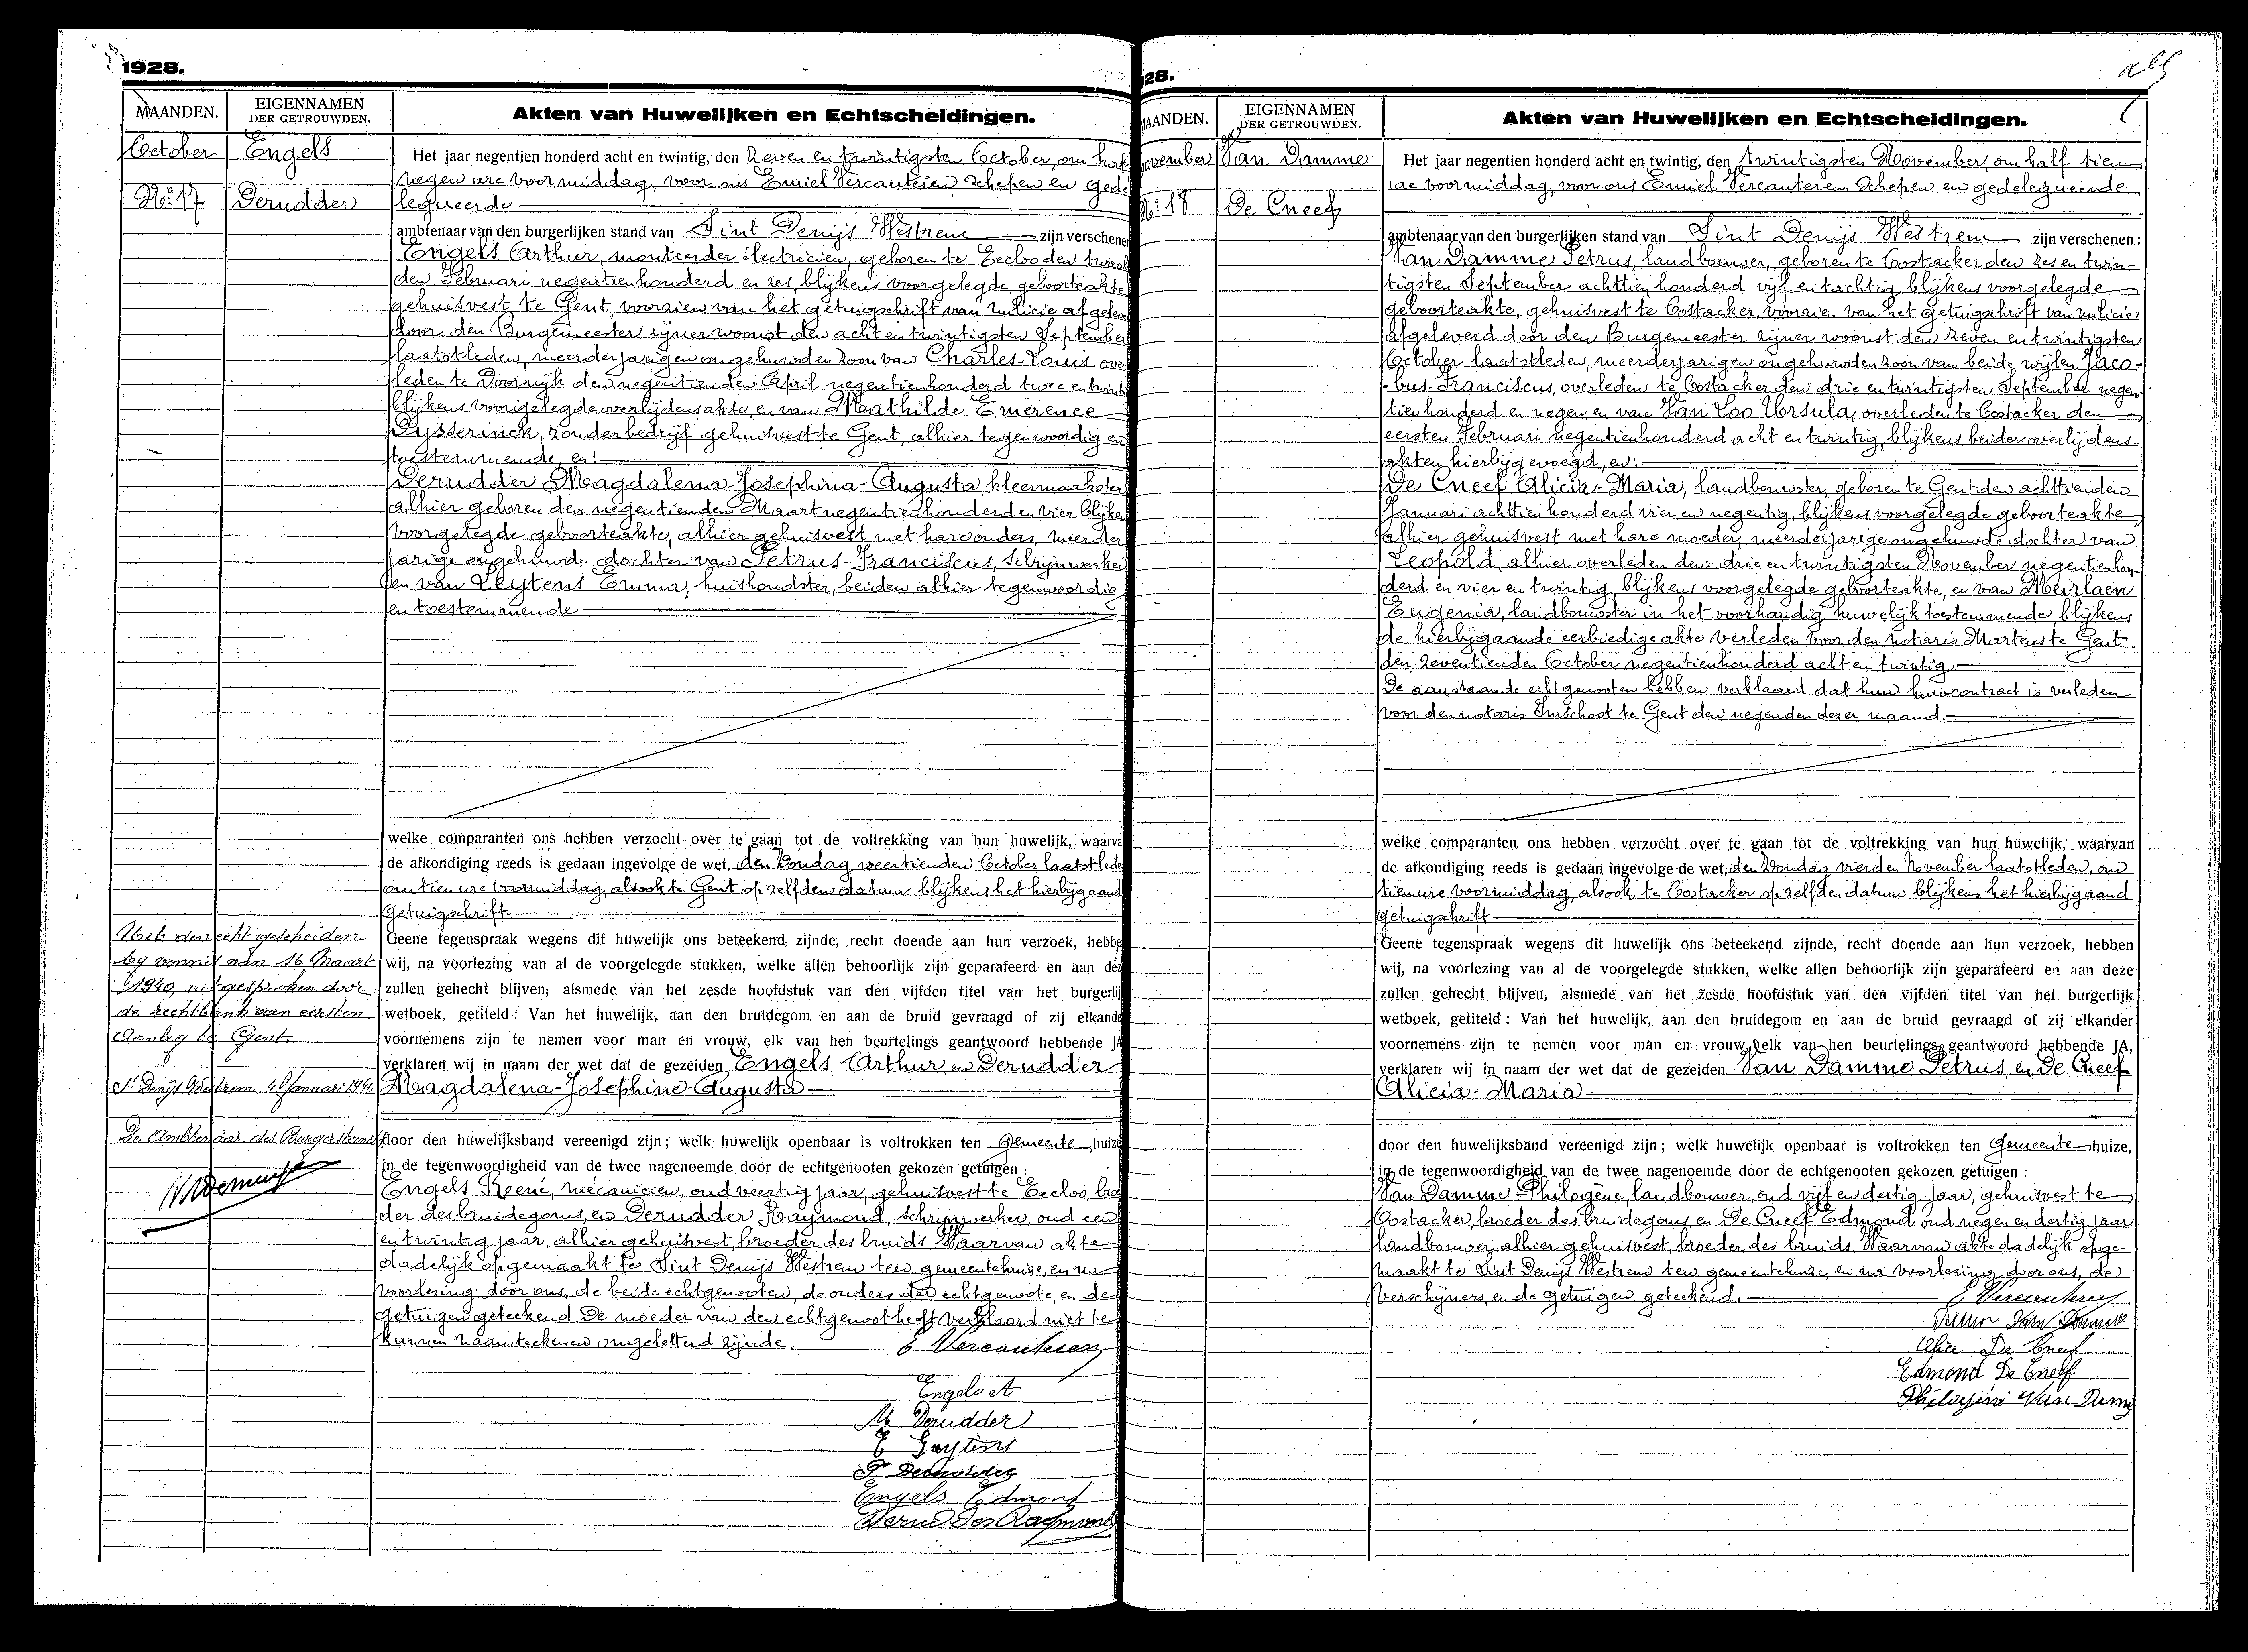 1928.
MAANDEN.
EIGENNAMEN
DER GETROUWDEN.
Akten van Huwelijken en Echtscheidingen.
October
Engels
No: 17
Derudder
Het jaar negentien honderd acht en twintig, den zeven en twintigsten October, om half
negen ure voormiddag, voor ons Emiel Vercauteren schepen en gede
legueerde
ambtenaar van den burgerlijken stand van Sint Denijs Westrem zijn verschenen
Engels Arthur, monteerder électricien, geboren te Eecloo den twaal
den Februari negentienhonderd en zes, blijkens voorgelegde geboorteakte
gehuisvest te Gent, voorzien van het getuigschrift van milicie afgelev
door den Burgemeester zijner woonst den acht en twintigsten September
laatstleden, meerderjarigen ongehuwden zoon van Charles-Louis over
leden te Doornijk den negentienden April negentienhonderd twee en twinti
blijkens voorgelegde overlijdensakte, en van Mathilde Emerence
Dysserinck, zonder bedrijf gehuisvest te Gent, alhier tegenwoordig en
toestemmende, en:
Derudder Magdalena-Josephina-Augusta, kleermaakster
alhier geboren den negentienden Maart negentienhonderd en vier blijken
voorgelegde geboorteakte, alhier gehuisvest met hare ouders, meerder
jarige ongehuwde dochter van Petrus-Franciscus, schrijnwerker
en van Leytens Emma, huishoudster, beiden alhier tegenwoordig
en toestemmende
welke comparanten ons hebben verzocht over te gaan tot de voltrekking van hun huwelijk, waarva
de afkondiging reeds is gedaan ingevolge de wet, den Zondag veertienden October laatstlede
om tien ure voormiddag, alsook te Gent op zelfden datum blijkens het hierbijgaand
getuigschrift
Geene tegenspraak wegens dit huwelijk ons beteekend zijnde, recht doende aan hun verzoek, hebbe
wij, na voorlezing van al de voorgelegde stukken, welke allen behoorlijk zijn geparafeerd en aan dez
zullen gehecht blijven, alsmede van het zesde hoofdstuk van den vijfden titel van het burgerlij
wetboek, getiteld: Van het huwelijk, aan den bruidegom en aan de bruid gevraagd of zij elkande
voornemens zijn te nemen voor man en vrouw, elk van hen beurtelings geantwoord hebbende JA
verklaren wij in naam der wet dat de gezeiden Engels Arthur, en Derudder
Magdalena-Josephine-Augusta
door den huwelijksband vereenigd zijn; welk huwelijk openbaar is voltrokken ten Gemeente huize
in de tegenwoordigheid van de twee nagenoemde door de echtgenooten gekozen getuigen:
Engels René, mécanicien, oud veertig jaar, gehuisvest te Eecloo, broe
der des bruidegoms, en Derudder Raymond, schrijnwerker, oud een
en twintig jaar, alhier gehuisvest, broeder des bruids. Waarvan akte
dadelijk opgemaakt te Sint Denijs Westrem ten gemeentehuize, en na
voorlezing door ons, de beide echtgenooten, de ouders der echtgenoote, en de
getuigen geteekend. De moeder van den echtgenoot heeft verklaard niet te
kunnen naamteekenen ongeletterd zijnde.
E Vercauteren
Engels A
M Derudder
Engels Edmond
Derudder Raymond
Uit den echt gescheiden
bij vonnis van 16 Maart
1940, uitgesproken door
de rechtbank van eersten
Aanleg te Gent
St Denijs Westrem 4 Januari 1941.
De Ambtenaar des Burgerstands
28.
MAANDEN.
EIGENNAMEN
DER GETROUWDEN.
Akten van Huwelijken en Echtscheidingen.
November
Van Damme
No: 18
De Cneef
Het jaar negentien honderd acht en twintig, den twintigsten November, om half tien
ure voormiddag, voor ons Emiel Vercauteren, Schepen en gedelegueerde
ambtenaar van den burgerlijken stand van Sint Denijs Westrem zijn verschenen:
Van Damme Petrus, landbouwer, geboren te Oostacker den zes en twin-
tigsten September achttien honderd vijf en tachtig, blijkens voorgelegde
geboorteakte, gehuisvest te Oostacker, voorzien van het getuigschrift van milicie
afgeleverd door den Burgemeester zijner woonst den zeven en twintigsten
October laatstleden, meerderjarigen ongehuwden zoon van beide wijlen Jaco-
bus-Franciscus, overleden te Oostacker den drie en twintigsten September negen
tienhonderd en negen, en van Van Loo Ursula, overleden te Oostacker den
eersten Februari negentienhonderd acht en twintig, blijkens beider overlijdens-
akten hierbij gevoegd, en:
De Cneef Alicia-Maria, landbouwster, geboren te Gent den achttienden
Januari achttien honderd vier en negentig, blijkens voorgelegde geboorteakte,
alhier gehuisvest met hare moeder, meerderjarige ongehuwde dochter van
Leopold, alhier overleden den drie en twintigsten November negentienhon-
derd en vier en twintig, blijkens voorgelegde geboorteakte, en van Meirlaen
Eugenia, landbouwster in het voorhandig huwelijk toestemmende, blijkens
de hierbijgaande eerbiedige akte verleden voor den notaris Martens te Gent
den zeventienden October negentienhonderd acht en twintig.
De aanstaande echtgenooten hebben verklaard dat hun huwcontract is verleden
voor den notaris Imschoot te Gent den negenden dezer maand.
welke comparanten ons hebben verzocht over te gaan tot de voltrekking van hun huwelijk, waarvan
de afkondiging reeds is gedaan ingevolge de wet, den Zondag vierden November laatstleden, om
tien ure voormiddag, alsook te Oostacker op zelfden datum blijkens het hierbijgaand
getuigschrift
Geene tegenspraak wegens dit huwelijk ons beteekend zijnde, recht doende aan hun verzoek, hebben
wij, na voorlezing van al de voorgelegde stukken, welke allen behoorlijk zijn geparafeerd en aan deze
zullen gehecht blijven, alsmede van het zesde hoofdstuk van den vijfden titel van het burgerlijk
wetboek, getiteld: Van het huwelijk, aan den bruidegom en aan de bruid gevraagd of zij elkander
voornemens zijn te nemen voor man en vrouw, elk van hen beurtelings geantwoord hebbende JA,
verklaren wij in naam der wet dat de gezeiden Van Damme Petrus, en De Cneef
Alicia-Maria
door den huwelijksband vereenigd zijn; welk huwelijk openbaar is voltrokken ten Gemeente huize,
in de tegenwoordigheid van de twee nagenoemde door de echtgenooten gekozen getuigen:
Van Damme Philogène, landbouwer, oud vijf en dertig jaar, gehuisvest te
Oostacker, broeder des bruidegoms, en De Cneef Edmond, oud negen en dertig jaar
landbouwer alhier gehuisvest, broeder des bruids. Waarvan akte dadelijk opge-
maakt te Sint Denijs Westrem ten gemeentehuize, en na voorlezing door ons, de
verschijners, en de getuigen geteekend.
E Vercauteren
Van Damme
Alice De Cneef
Edmond De Cneef